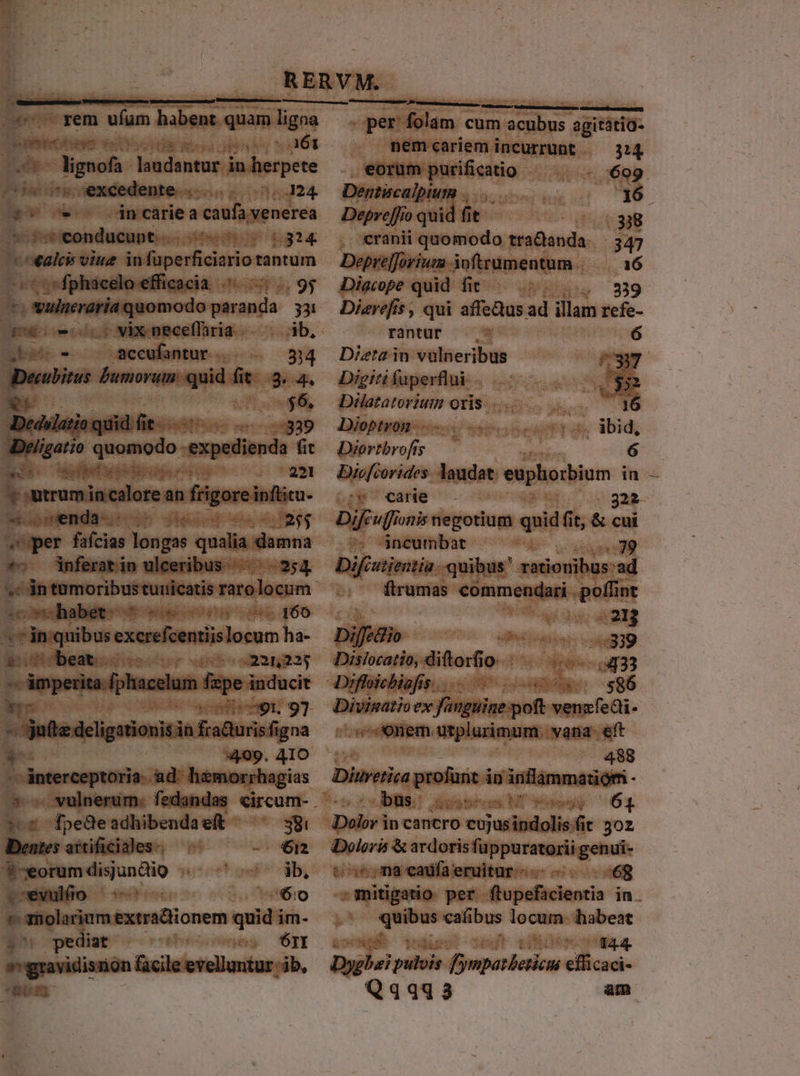 RERVM.
rem usum habent quam ligna
161
lignosa laudantur in herpete
excedente 124
in carie a causa venerea
conducunt 324
calcis vivæ in superficiario tantum
sphacelo efficacia 95
vulneraria quomodo paranda 331
vix necessaria ib.
accusantur 334
Decubitus humorum quid fit 3. 4.
56.
Dedolatio quid fit 339
Deligatio quomodo expedienda fit
221
utrum in calore an frigore institu-
enda 255
per fascias longas qualia damna
inferat in ulceribus 254
in tumoribus tunicatis raro locum
habet 160
in quibus excrescentiis locum ha-
beat 221,225
imperita sphacelum sæpe inducit
91. 97
justæ deligationis in fracturis signa
409. 410
interceptoria ad hæmorrhagias
vulnerum sedandas circum-
specte adhibenda est 381
Dentes artificiales 612
eorum disjunctio ib.
evulsio 610
molarium extractionem quid im-
pediat 611
gravidis non facile evelluntur ib.
per solam cum acubus agitatio-
nem cariem incurrunt 324
eorum purificatio 609
Dentiscalpium 16
Depressio quid fit 338
cranii quomodo tractanda 347
Depressorium instrumentum 16
Diacope quid fit 339
Diæresis, qui affectus ad illam refe-
rantur 6
Diæta in vulneribus 337
Digiti superflui 552
Dilatatorium oris 16
Dioptron ibid.
Diorthrosis 6
Dioscorides laudat euphorbium in
carie 322
Discussionis negotium quid fit, & cui
incumbat 79
Discutientia quibus rationibus ad
strumas commendari possint
213
Dissectio 339
Dislocatio, distorsio 433
Distoichiasis 586
Divinatio ex sanguine post venæsecti-
onem utplurimum vana est
488
Diuretica profunt in inflammatiom-
bus 64
Dolor in cancro cujus indolis fit 302
Doloris & ardoris suppuratorii genui-
na causa eruitur 68
mitigatio per stupefacientia in
quibus casibus locum habeat
144
Dygbæi pulvis sympatheticus efficaci-
Qqqq 3 am